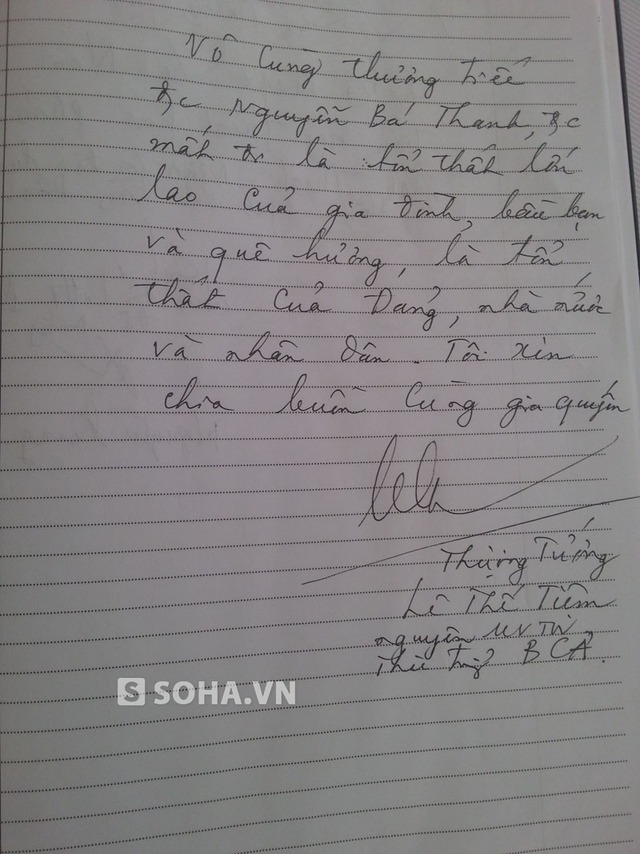 Vô Cùng thương tiếc
đ/c Nguyễn Bá Thanh, đ/c
mất đi là tổn thất lớn
lao của gia đình, bầu bạn
và quê hương, là tổn
thất của Đảng, nhà nước
và nhân dân. Tôi xin
chia buồn cùng gia quyến
Thượng Tướng
Lê Thế Tiệm
nguyên UV TW
Thứ trg BCA.
SOHA.VN